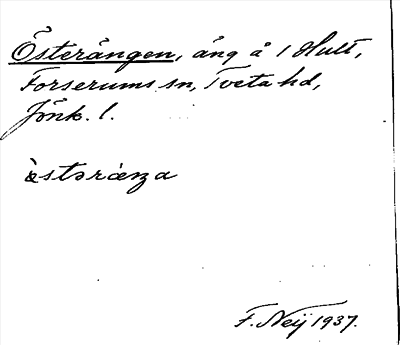 Österängen, äng å 1 Hult,
Forserums sn, Tveta hd,
Jönk. l.
östəräŋa
F. Neij 1937.